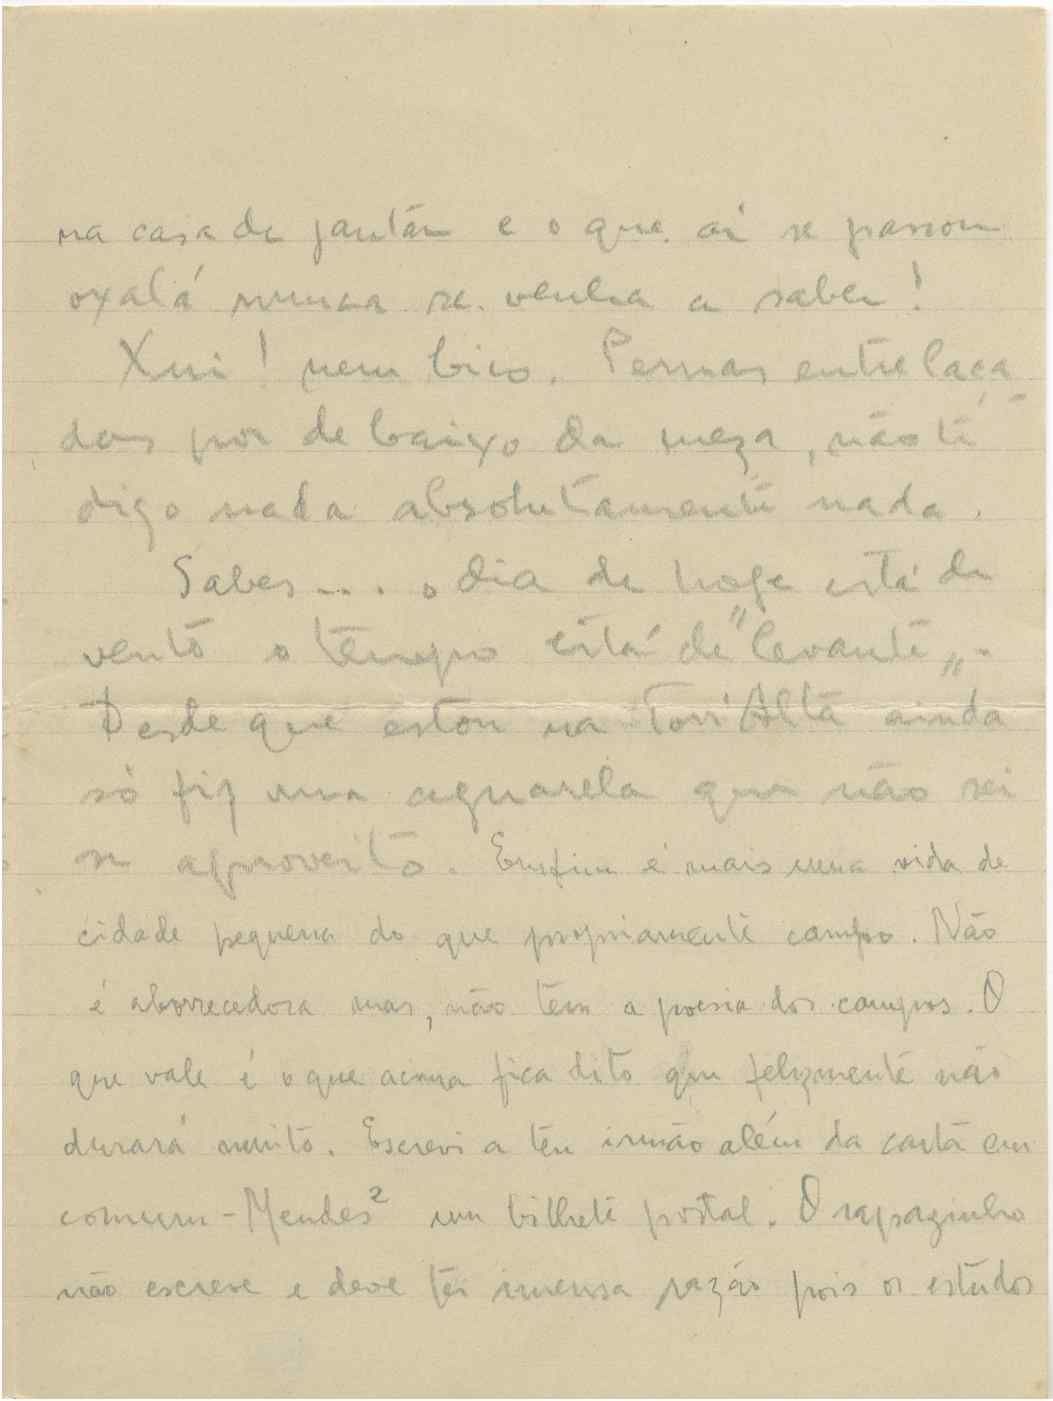 na casa de jantar e o que aí se passou
oxalá nunca se venha a saber!
Xui! nem bico. Pernas entrelaça-
das por debaixo da meza, não te
digo nada absolutamente nada.
Sabes... o dia de hoje está de
vento o tempo está de "levante„.
Desde que estou na Torr'Alta ainda
só fiz uma aguarela que não sei
se aproveito. Emfim é mais uma vida de
cidade pequena do que propriamente campo. Não
é aborrecedora mas, não tem a poesia dos campos. O
que vale é o que acima fica dito que felizmente não
durará muito. Escrevi a teu irmão além da carta em
comum-Mendes² um bilhete postal. O rapazinho
não escreve e deve ter imensa razão pois os estudos